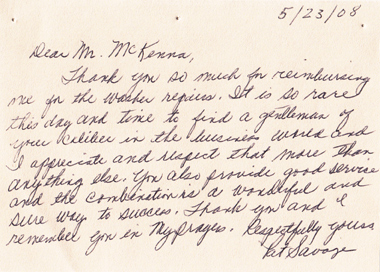 5/23/08
Dear Mr. McKenna,
Thank you so much for reimbursing
me for the washer repairs. It is so rare
this day and time to find a gentleman of
your caliber in the business world and
I appreciate and respect that more than
anything else. You also provide good service
and the combination is a wonderful and
sure way to success. Thank you and I
remember you in my prayers. Respectfully yours,
Pat Savage